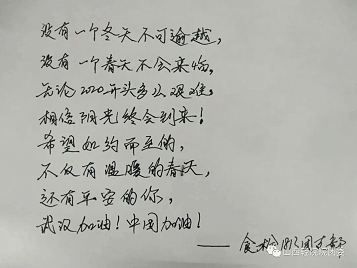 没有一个冬天不可逾越,
没有一个春天不会来临。
无论2020开头多么艰难,
相信阳光终会到来!
希望如约而至的,
不仅有温暖的春天,
还有平安的你,
武汉加油!中国加油!
——食检 团支部